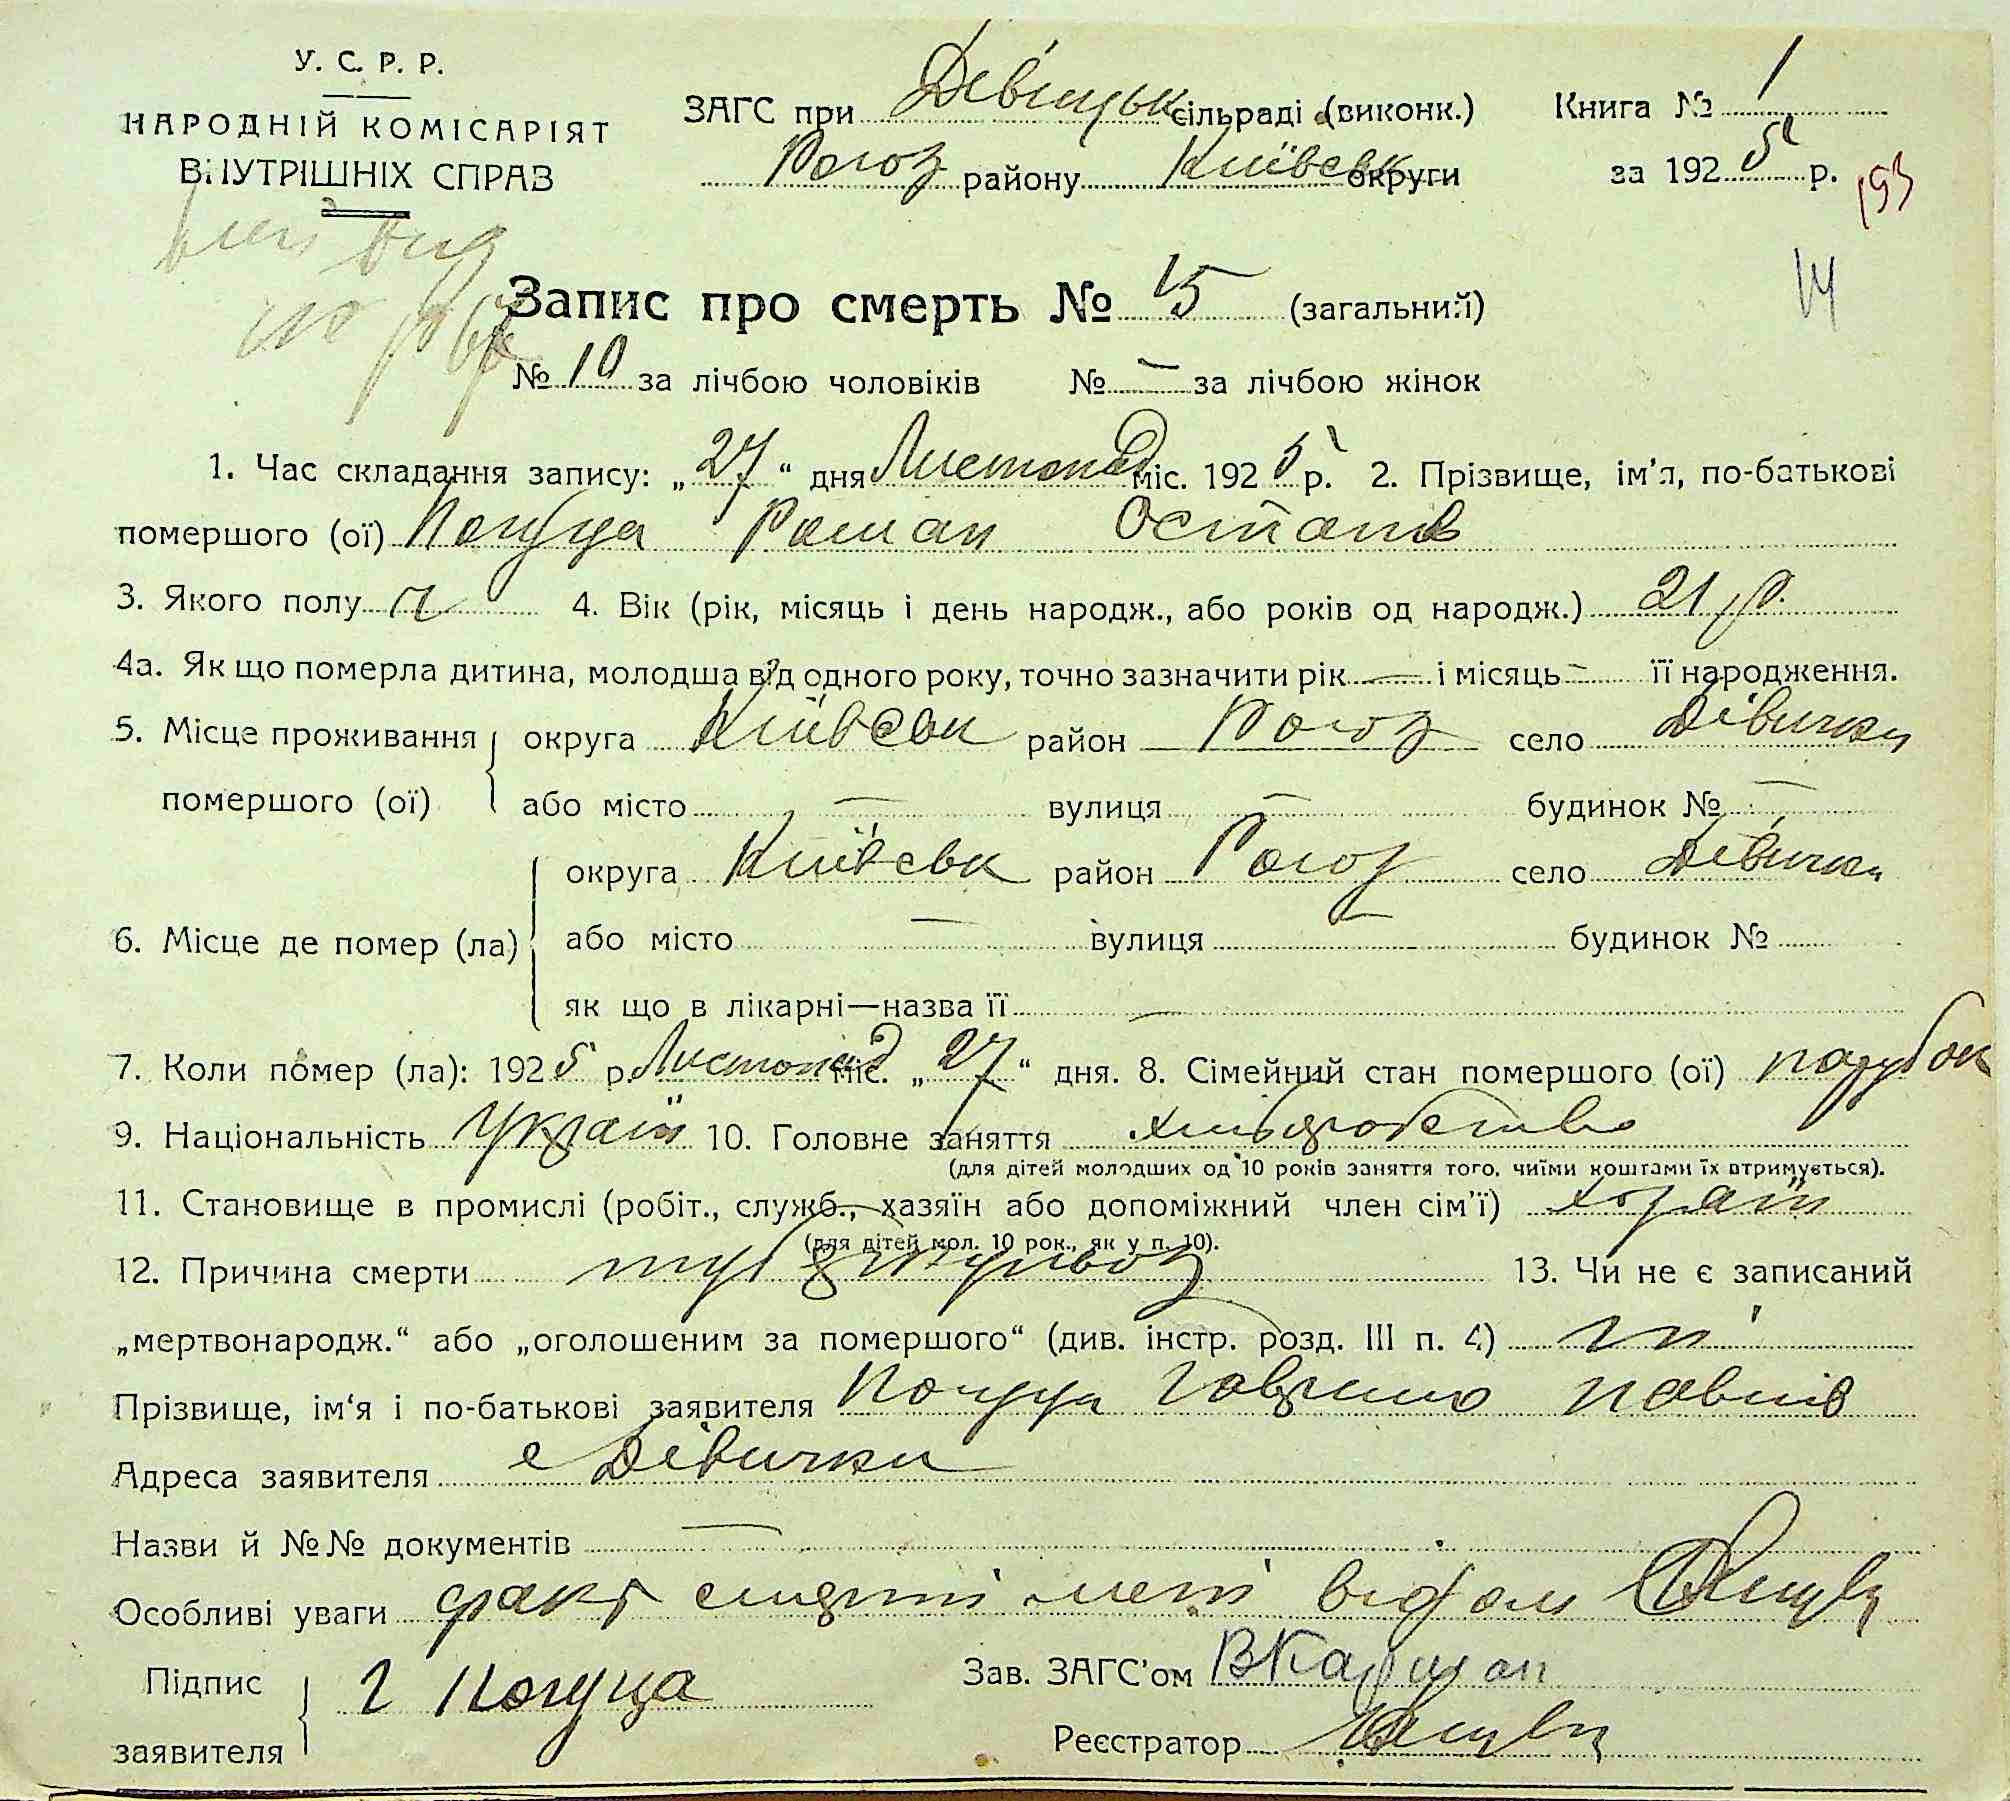 У. С. Р. Р.
НАРОДНІЙ КОМІСАРІЯТ
ВНУТРІШНІХ СПРАВ
ЗАГС при Девицьк сільраді (виконк.) Книга № 1
Рогоз району Київськ округи за 1925 р.
193
14
Запис про смерть № 15 (загальний)
№ 10 за лічбою чоловіків № — за лічбою жінок
1. Час складання запису: „27“ дня Листопад міс. 1925 р. 2. Прізвище, ім'я, по-батькові
помершого (ої) Погуца Роман Остапів
3. Якого полу ч 4. Вік (рік, місяць і день народж., або років од народж.) 21 р.
4а. Як що померла дитина, молодша від одного року, точно зазначити рік — і місяць — її народження.
5. Місце проживання помершого (ої) округа Київськ район Рогоз село Дівички
або місто — вулиця — будинок № —
6. Місце де помер (ла) округа Київськ район Рогоз село Дівички
або місто — вулиця — будинок №
як що в лікарні—назва її —
7. Коли помер (ла): 1925 р. Листопад міс. „27“ дня. 8. Сімейний стан помершого (ої) парубок
9. Національність Україн 10. Головне заняття хліборобство
(для дітей молодших од 10 років заняття того, чиїми коштами їх втримується).
11. Становище в промислі (робіт., служб., хазяїн або допоміжний член сім'ї) хазяїн
(для дітей мол. 10 рок., як у п. 10).
12. Причина смерти туберкульоз 13. Чи не є записаний
„мертвонародж.“ або „оголошеним за помершого“ (див. інстр. розд. III п. 4) ні
Прізвище, ім'я і по-батькові заявителя Погуца Гаврило Павлів
Адреса заявителя с Дівички
Назви й №№ документів —
Особливі уваги факт смерти мені відом
Підпис заявителя Г Погуца
Зав. ЗАГС'ом
Реєстратор